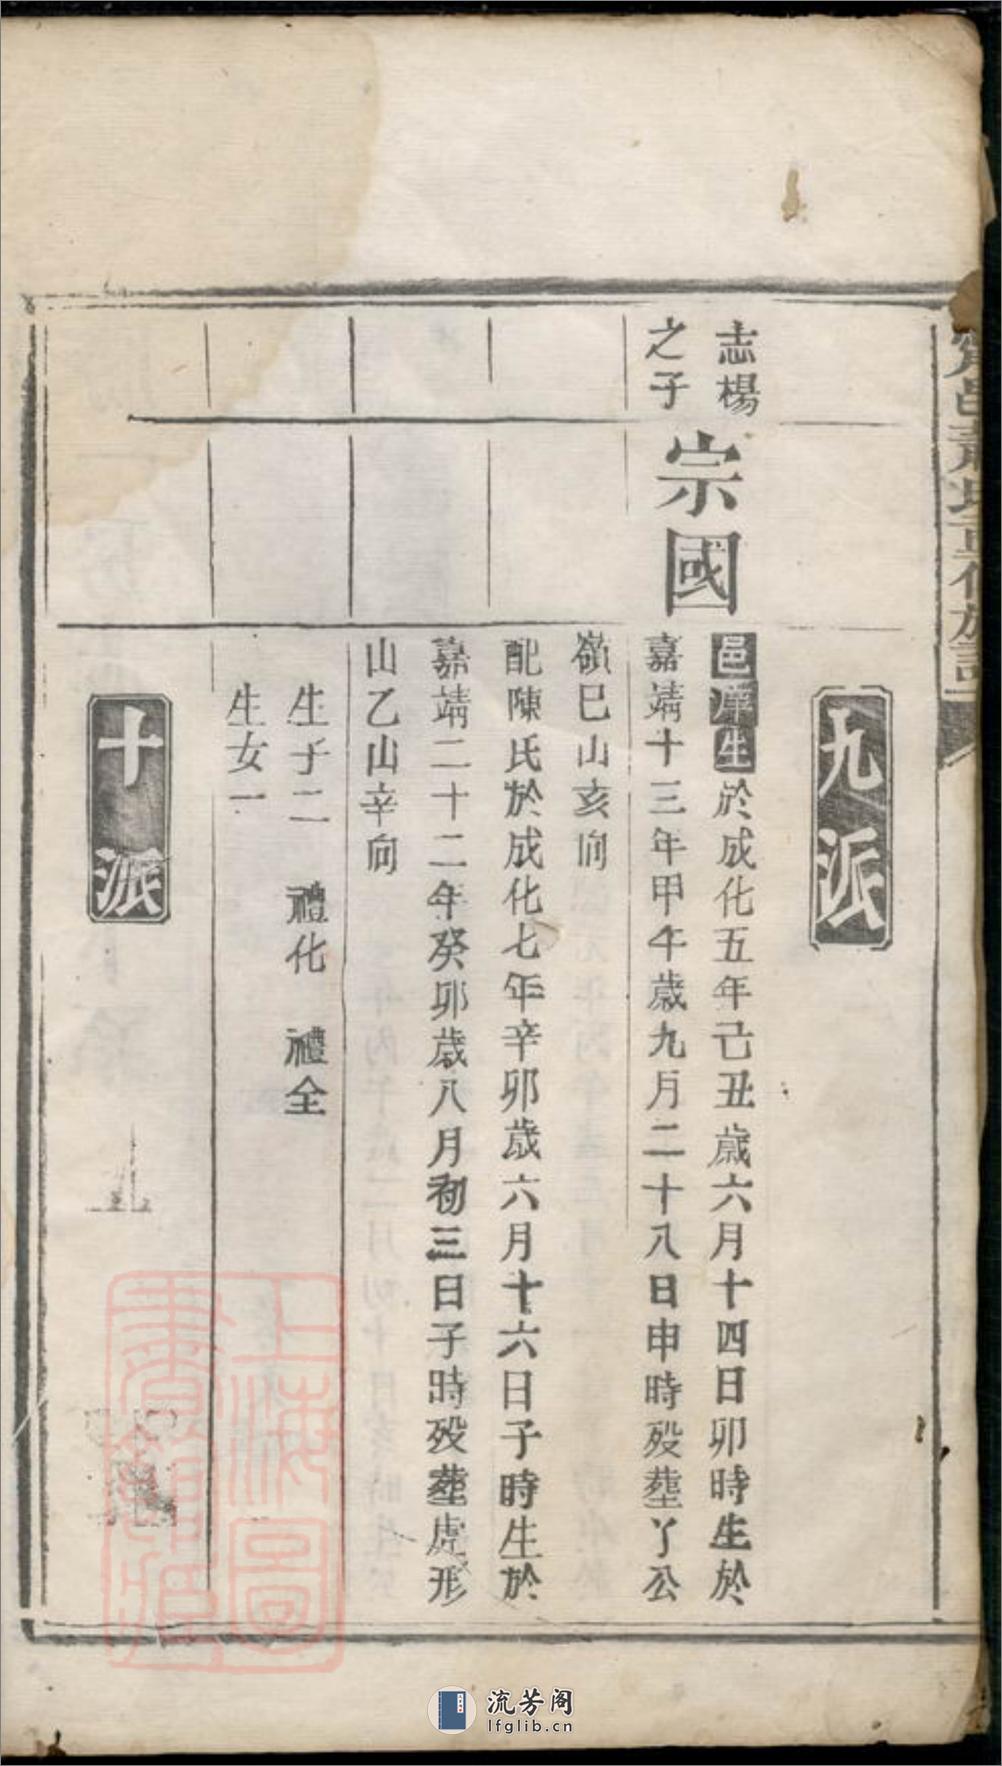 九派
志楊
之子
宗國
邑庠生於成化五年己丑歲六月十四日卯時生於
嘉靖十三年甲午歲九月二十八日申時歿塟丫公
嶺巳山亥向
配陳氏於成化七年辛卯歲六月十六日子時生於
嘉靖二十二年癸卯歲八月初三日子時歿塟虎形
山乙山辛向
生子二 禮化 禮全
生女一
十派
上海圖
書館藏
流芳阁
lfglib.cn